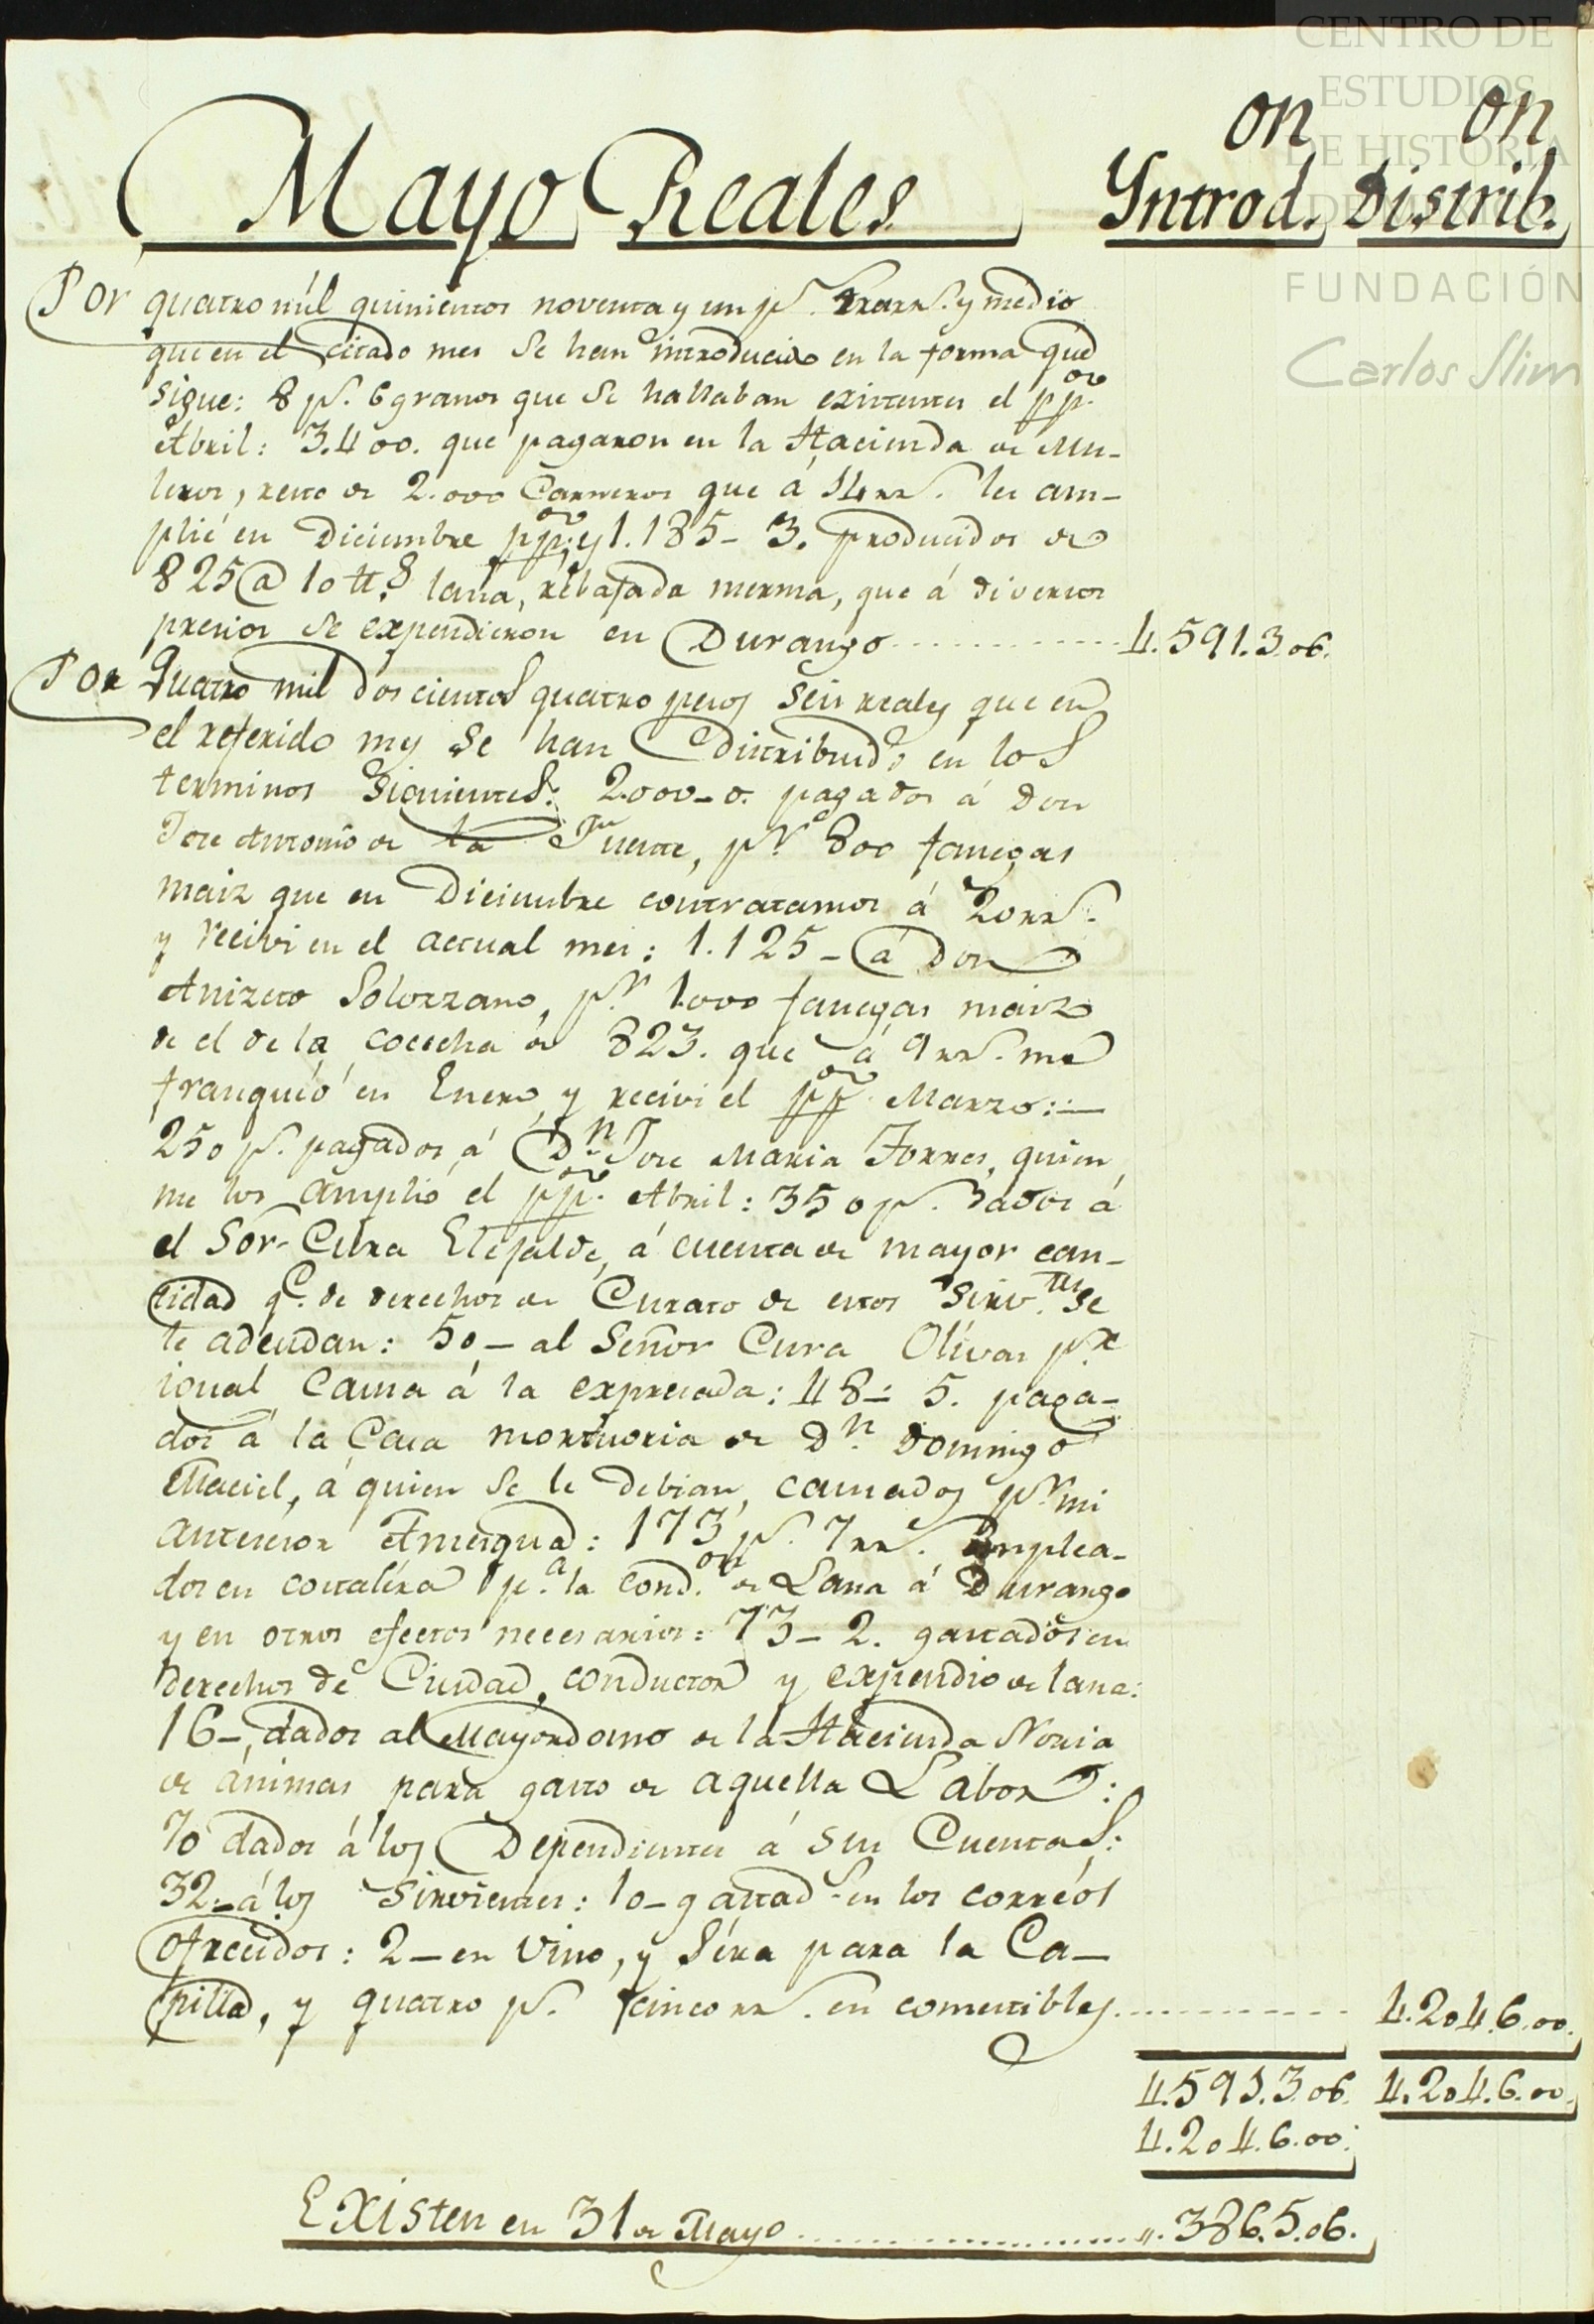 CENTRO DE
ESTUDIOS
DE HISTORIA
DE MÉXICO
FUNDACIÓN
Carlos Slim
Mayo Reales Introd.on Distrib.on
Por quatro mil quinientos noventa y un ps. tres rrs. y medio
que en el citado mes se han introducido en la forma que
sigue: 8 ps. 6 granos que se hallaban existentes el pp.do
Abril: 3.400. que pagaron en la Hacienda de Mu-
leros, resto de 2.000 Carneros que á 14 rrs. les am-
plié en Diciembre pp.do y 1.185-3. producidos de
825 @ 10 tt.s lana, rebajada merma, que á diversos
presios se expendieron en Durango 4.591.3.06.
Por Quatro mil doscientos quatro pesos seis reales que en
el referido mes se han distribuido en los
terminos siguientes: 2.000-0. pagados á Don
Jose Antonio de la Fuente, pr. 800 fanegas
maiz que en Diciembre contratamos á 20 rrs.
y recivi en el actual mes: 1.125- á Don
Anizeto Solorzano, pr. 1.000 fanegas maiz
de el de la cocecha de 823. que á 9 rrs. me
franqueó en Enero, y recivi el pp.do Marzo:-
250 ps. pagados á Dn. Jose Maria Torres, quien
me los amplió el pp.do Abril: 350 ps. dados á
el Sor. Cura Elejalde, á cuenta de mayor can-
tidad qe. de derechos de Curato de estos Sirv.tes se
le adeudan: 50- al Señor Cura Olivas pr.
igual causa á la expresada: 48-5. paga-
dos á la Casa mortuoria de Dn. Domingo
Maciel, á quien se le debian, causados pr. mi
antecesor Amezqua: 173 ps. 7 rrs. emplea-
dos en costalera pa. la cond.on de Lana á Durango
y en otros efectos necesarios: 73-2. gastados en
derechos de Ciudad, conductor y expendio de lana:
16-, dados al Mayordomo de la Hacienda Noria
de animas para gasto de aquella Labor:
70 dados á los Dependientes á sus Cuentas:
32- á los Sirvientes: 10- gastads. en los correos
ofrecidos: 2- en vino, y Séra para la Ca-
pilla, y quatro ps. cinco rrs. en comestibles 4.204.6.00.
4.591.3.06. 4.204.6.00.
4.204.6.00.
Existen en 31 de Mayo ". 386.5.06.